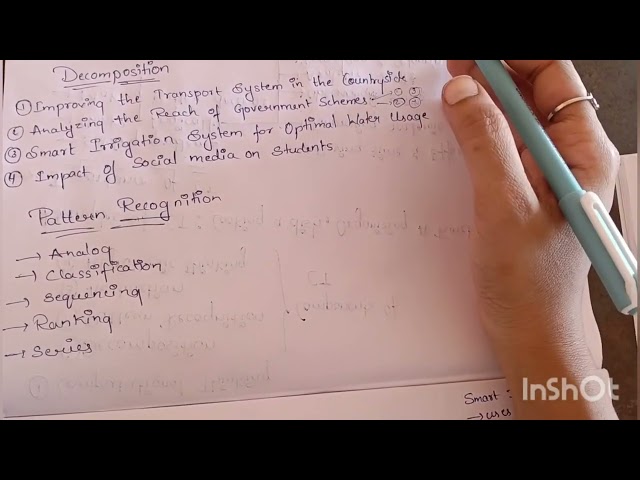 Decomposition
① Improving the Transport System in the Countryside
② Analyzing the Reach of Government Schemes:-
③ Smart Irrigation System for Optimal Water Usage
④ Impact of Social media on Students
Pattern Recognition
→ Analog
→ Classification
→ Sequencing
→ Ranking
→ Series
Smart :
→ uses
InShOt